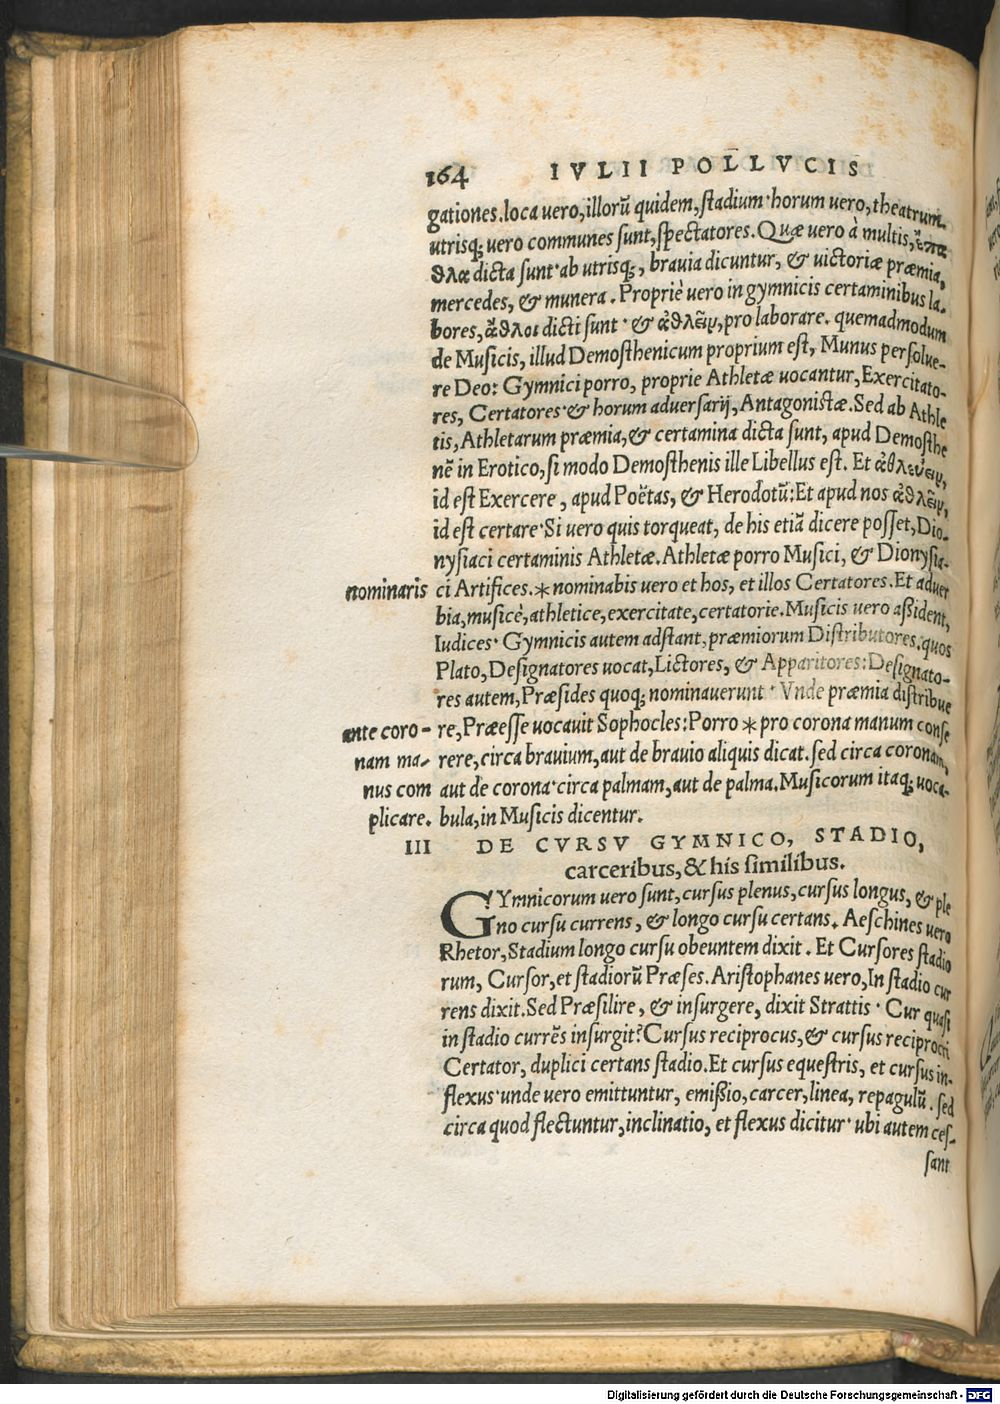 164 IVLII POLLVCIS
gationes. loca uero, illorũ quidem, stadium· horum uero, theatrum.
utrisq; uero communes sunt, spectatores. Quæ uero à multis, ἔπα
θλα dicta sunt· ab utrisq;, brauia dicuntur, & uictoriæ præmia,
mercedes, & munera. Propriè uero in gymnicis certaminibus la-
bores, ἆθλοι dicti sunt· & ἀθλεῖν, pro laborare. quemadmodum
de Musicis, illud Demosthenicum proprium est, Munus persolue-
re Deo: Gymnici porro, proprie Athletæ uocantur, Exercitato-
res, Certatores· & horum aduersarij, Antagonistæ. Sed ab Athle
tis, Athletarum præmia, & certamina dicta sunt, apud Demosthe
nẽ in Erotico, si modo Demosthenis ille Libellus est. Et ἀθλεύειν,
id est Exercere, apud Poëtas, & Herodotũ: Et apud nos ἀθλεῖν,
id est certare· Si uero quis torqueat, de his etiã dicere posset, Dio-
nysiaci certaminis Athletæ. Athletæ porro Musici, & Dionysia-
nominaris ci Artifices. * nominabis uero et hos, et illos Certatores. Et aduer
bia, musicè, athletice, exercitate, certatorie. Musicis uero aßident,
Iudices· Gymnicis autem adstant, præmiorum Distributores. quos
Plato, Designatores uocat, Lictores, & Apparitores: Designato-
res autem, Præsides quoq; nominauerunt· Vnde præmia distribue
ante coro- re, Præesse uocauit Sophocles: Porro * pro corona manum conse
nam ma- rere, circa brauium, aut de brauio aliquis dicat. sed circa coronam,
nus com aut de corona· circa palmam, aut de palma. Musicorum itaq; uoca-
plicare. bula, in Musicis dicentur.
III DE CVRSV GYMNICO, STADIO,
carceribus, & his similibus.
GYmnicorum uero sunt, cursus plenus, cursus longus, & ple
no cursu currens, & longo cursu certans. Aeschines uero
Rhetor, Stadium longo cursu obeuntem dixit. Et Cursores stadio
rum, Cursor, et stadiorũ Præses. Aristophanes uero, In stadio cur
rens dixit. Sed Præsilire, & insurgere, dixit Strattis· Cur quasi
in stadio currẽs insurgit? Cursus reciprocus, & cursus reciproci
Certator, duplici certans stadio. Et cursus equestris, et cursus in-
flexus· unde uero emittuntur, emißio, carcer, linea, repagulũ. sed
circa quod flectuntur, inclinatio, et flexus dicitur· ubi autem ces-
sant
Digitalisierung gefördert durch die Deutsche Forschungsgemeinschaft - DFG